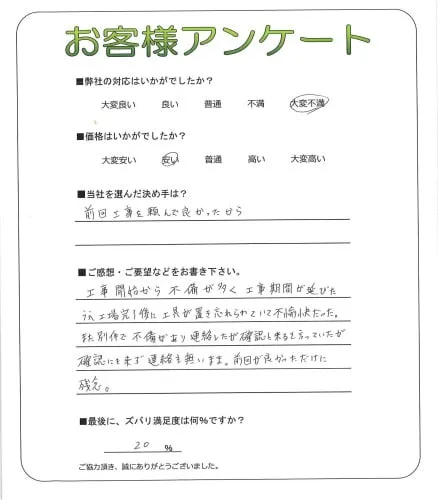 お客様アンケート
■弊社の対応はいかがでしたか？
大変良い 良い 普通 不満 大変不満
■価格はいかがでしたか？
大変安い 安い 普通 高い 大変高い
■当社を選んだ決め手は？
前回工事を頼んで良かったから
■ご感想・ご要望などをお書き下さい。
工事開始から 不備が多く 工事期間が延びた
うえ工場完了後に工具が置き忘れられていて不愉快だった。
また別件で不備があり連絡したが確認に来ると言っていたが
確認にも来ず連絡も無いまま。前回が良かっただけに
残念。
■最後に、ズバリ満足度は何％ですか？
20 ％
ご協力頂き、誠にありがとうございました。